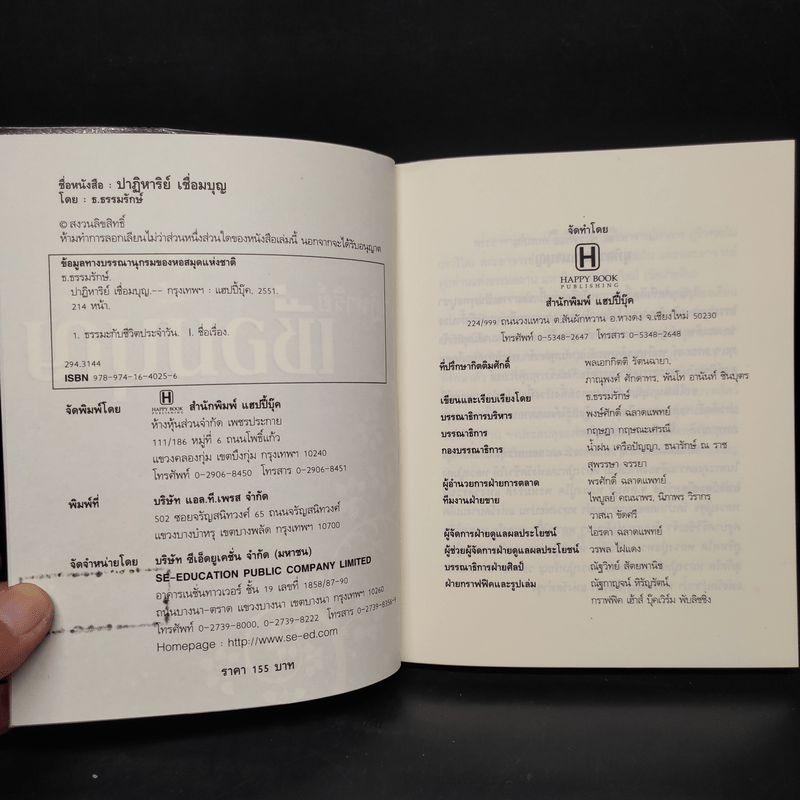 ชื่อหนังสือ : ปาฏิหาริย์ เชื่อมบุญ
โดย : ธ.ธรรมรักษ์
© สงวนลิขสิทธิ์
ห้ามทำการลอกเลียนไม่ว่าส่วนหนึ่งส่วนใดของหนังสือเล่มนี้ นอกจากจะได้รับอนุญาต
ข้อมูลทางบรรณานุกรมของหอสมุดแห่งชาติ
ธ.ธรรมรักษ์.
ปาฏิหาริย์ เชื่อมบุญ.-- กรุงเทพฯ : แฮปปี้บุ๊ค, 2551.
214 หน้า.
1. ธรรมะกับชีวิตประจำวัน. I. ชื่อเรื่อง.
294.3144
ISBN 978-974-16-4025-6
จัดพิมพ์โดย
H
HAPPY BOOK
PUBLISHING
สำนักพิมพ์ แฮปปี้บุ๊ค
ห้างหุ้นส่วนจำกัด เพชรประกาย
111/186 หมู่ที่ 6 ถนนโพธิ์แก้ว
แขวงคลองกุ่ม เขตบึงกุ่ม กรุงเทพฯ 10240
โทรศัพท์ 0-2906-8450 โทรสาร 0-2906-8451
พิมพ์ที่ บริษัท แอล.ที.เพรส จำกัด
502 ซอยจรัญสนิทวงศ์ 65 ถนนจรัญสนิทวงศ์
แขวงบางบำหรุ เขตบางพลัด กรุงเทพฯ 10700
จัดจำหน่ายโดย บริษัท ซีเอ็ดยูเคชั่น จำกัด (มหาชน)
SE-EDUCATION PUBLIC COMPANY LIMITED
อาคารเนชั่นทาวเวอร์ ชั้น 19 เลขที่ 1858/87-90
ถนนบางนา-ตราด แขวงบางนา เขตบางนา กรุงเทพฯ 10260
โทรศัพท์ 0-2739-8000, 0-2739-8222 โทรสาร 0-2739-8356-9
Homepage : http://www.se-ed.com
ราคา 155 บาท
จัดทำโดย
H
HAPPY BOOK
PUBLISHING
สำนักพิมพ์ แฮปปี้บุ๊ค
224/999 ถนนวงแหวน ต.สันผักหวาน อ.หางดง จ.เชียงใหม่ 50230
โทรศัพท์ 0-5348-2647 โทรสาร 0-5348-2648
ที่ปรึกษากิตติมศักดิ์ พลเอกกิตติ รัตนฉายา,
ภาณุพงศ์ ศักดาทร, พันโท อานันท์ ชินบุตร
เขียนและเรียบเรียงโดย ธ.ธรรมรักษ์
บรรณาธิการบริหาร พงษ์ศักดิ์ ฉลาดแพทย์
บรรณาธิการ กฤษฎา กฤษณะเศรณี
กองบรรณาธิการ น้ำฝน เครือปัญญา, ธนารักษ์ ณ ราช
สุพรรษา จรรยา
ผู้อำนวยการฝ่ายการตลาด พรศักดิ์ ฉลาดแพทย์
ทีมงานฝ่ายขาย ไพบูลย์ คณนาพร, นิภาพร วิรากร
วาสนา ขัดศรี
ผู้จัดการฝ่ายดูแลผลประโยชน์ ไอรดา ฉลาดแพทย์
ผู้ช่วยผู้จัดการฝ่ายดูแลผลประโยชน์ วรพล ไฝแดง
บรรณาธิการฝ่ายศิลป์ ณัฐวิทย์ สัตยพานิช
ฝ่ายกราฟฟิคและรูปเล่ม ณัฐกาญจน์ หิรัญรัตน์,
กราฟฟิค เฮ้าส์ บุ๊คเวิร์ม พับลิชชิ่ง